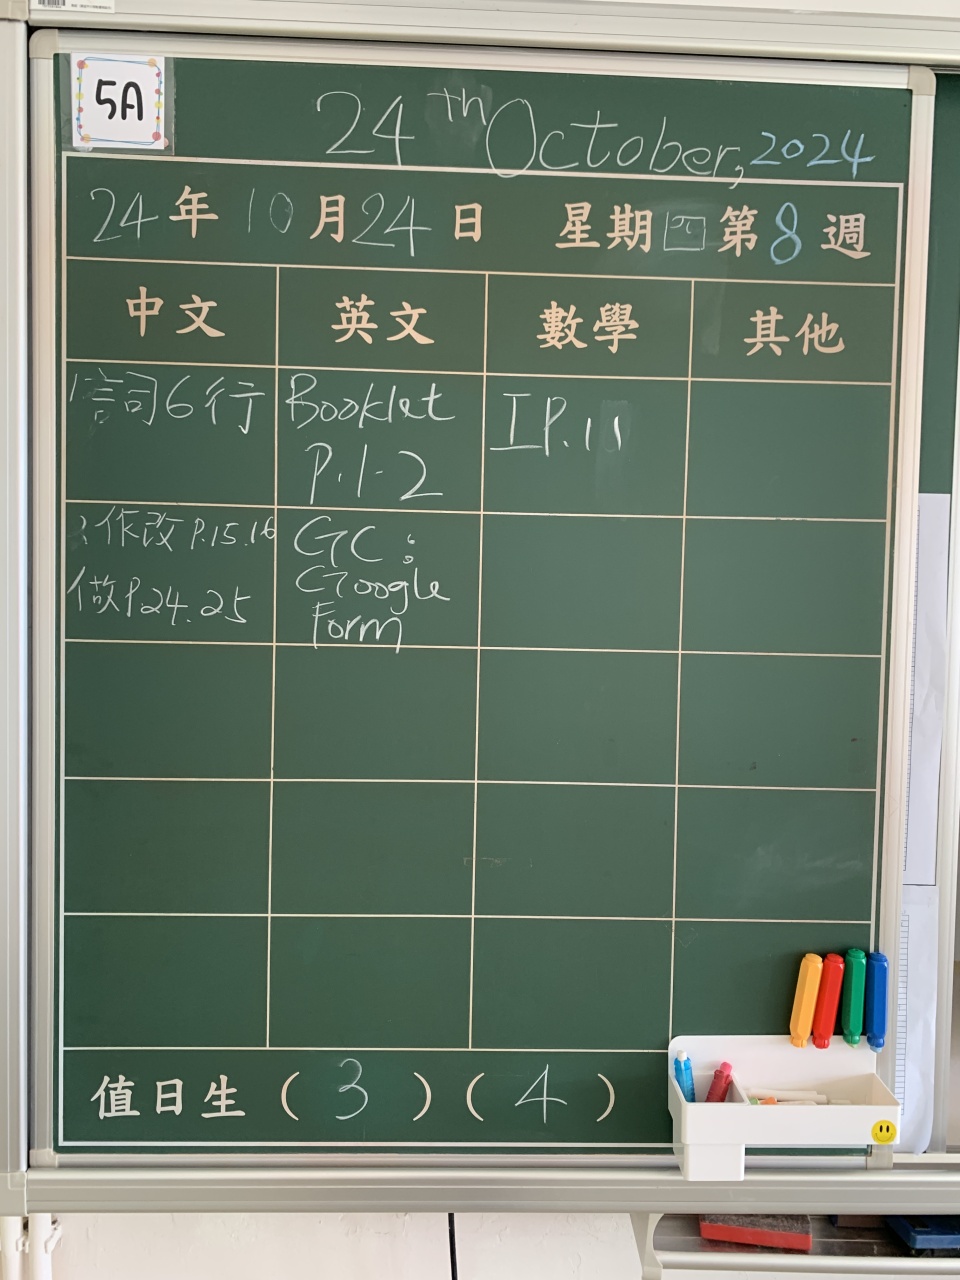 5A
24th October, 2024
24年10月24日 星期四第8週
中文 英文 數學 其他
1.言司6行 Booklet P.1-2 IP.11
2.作改P.15.16 GC: Google Form
做P24.25
值日生(3)(4)